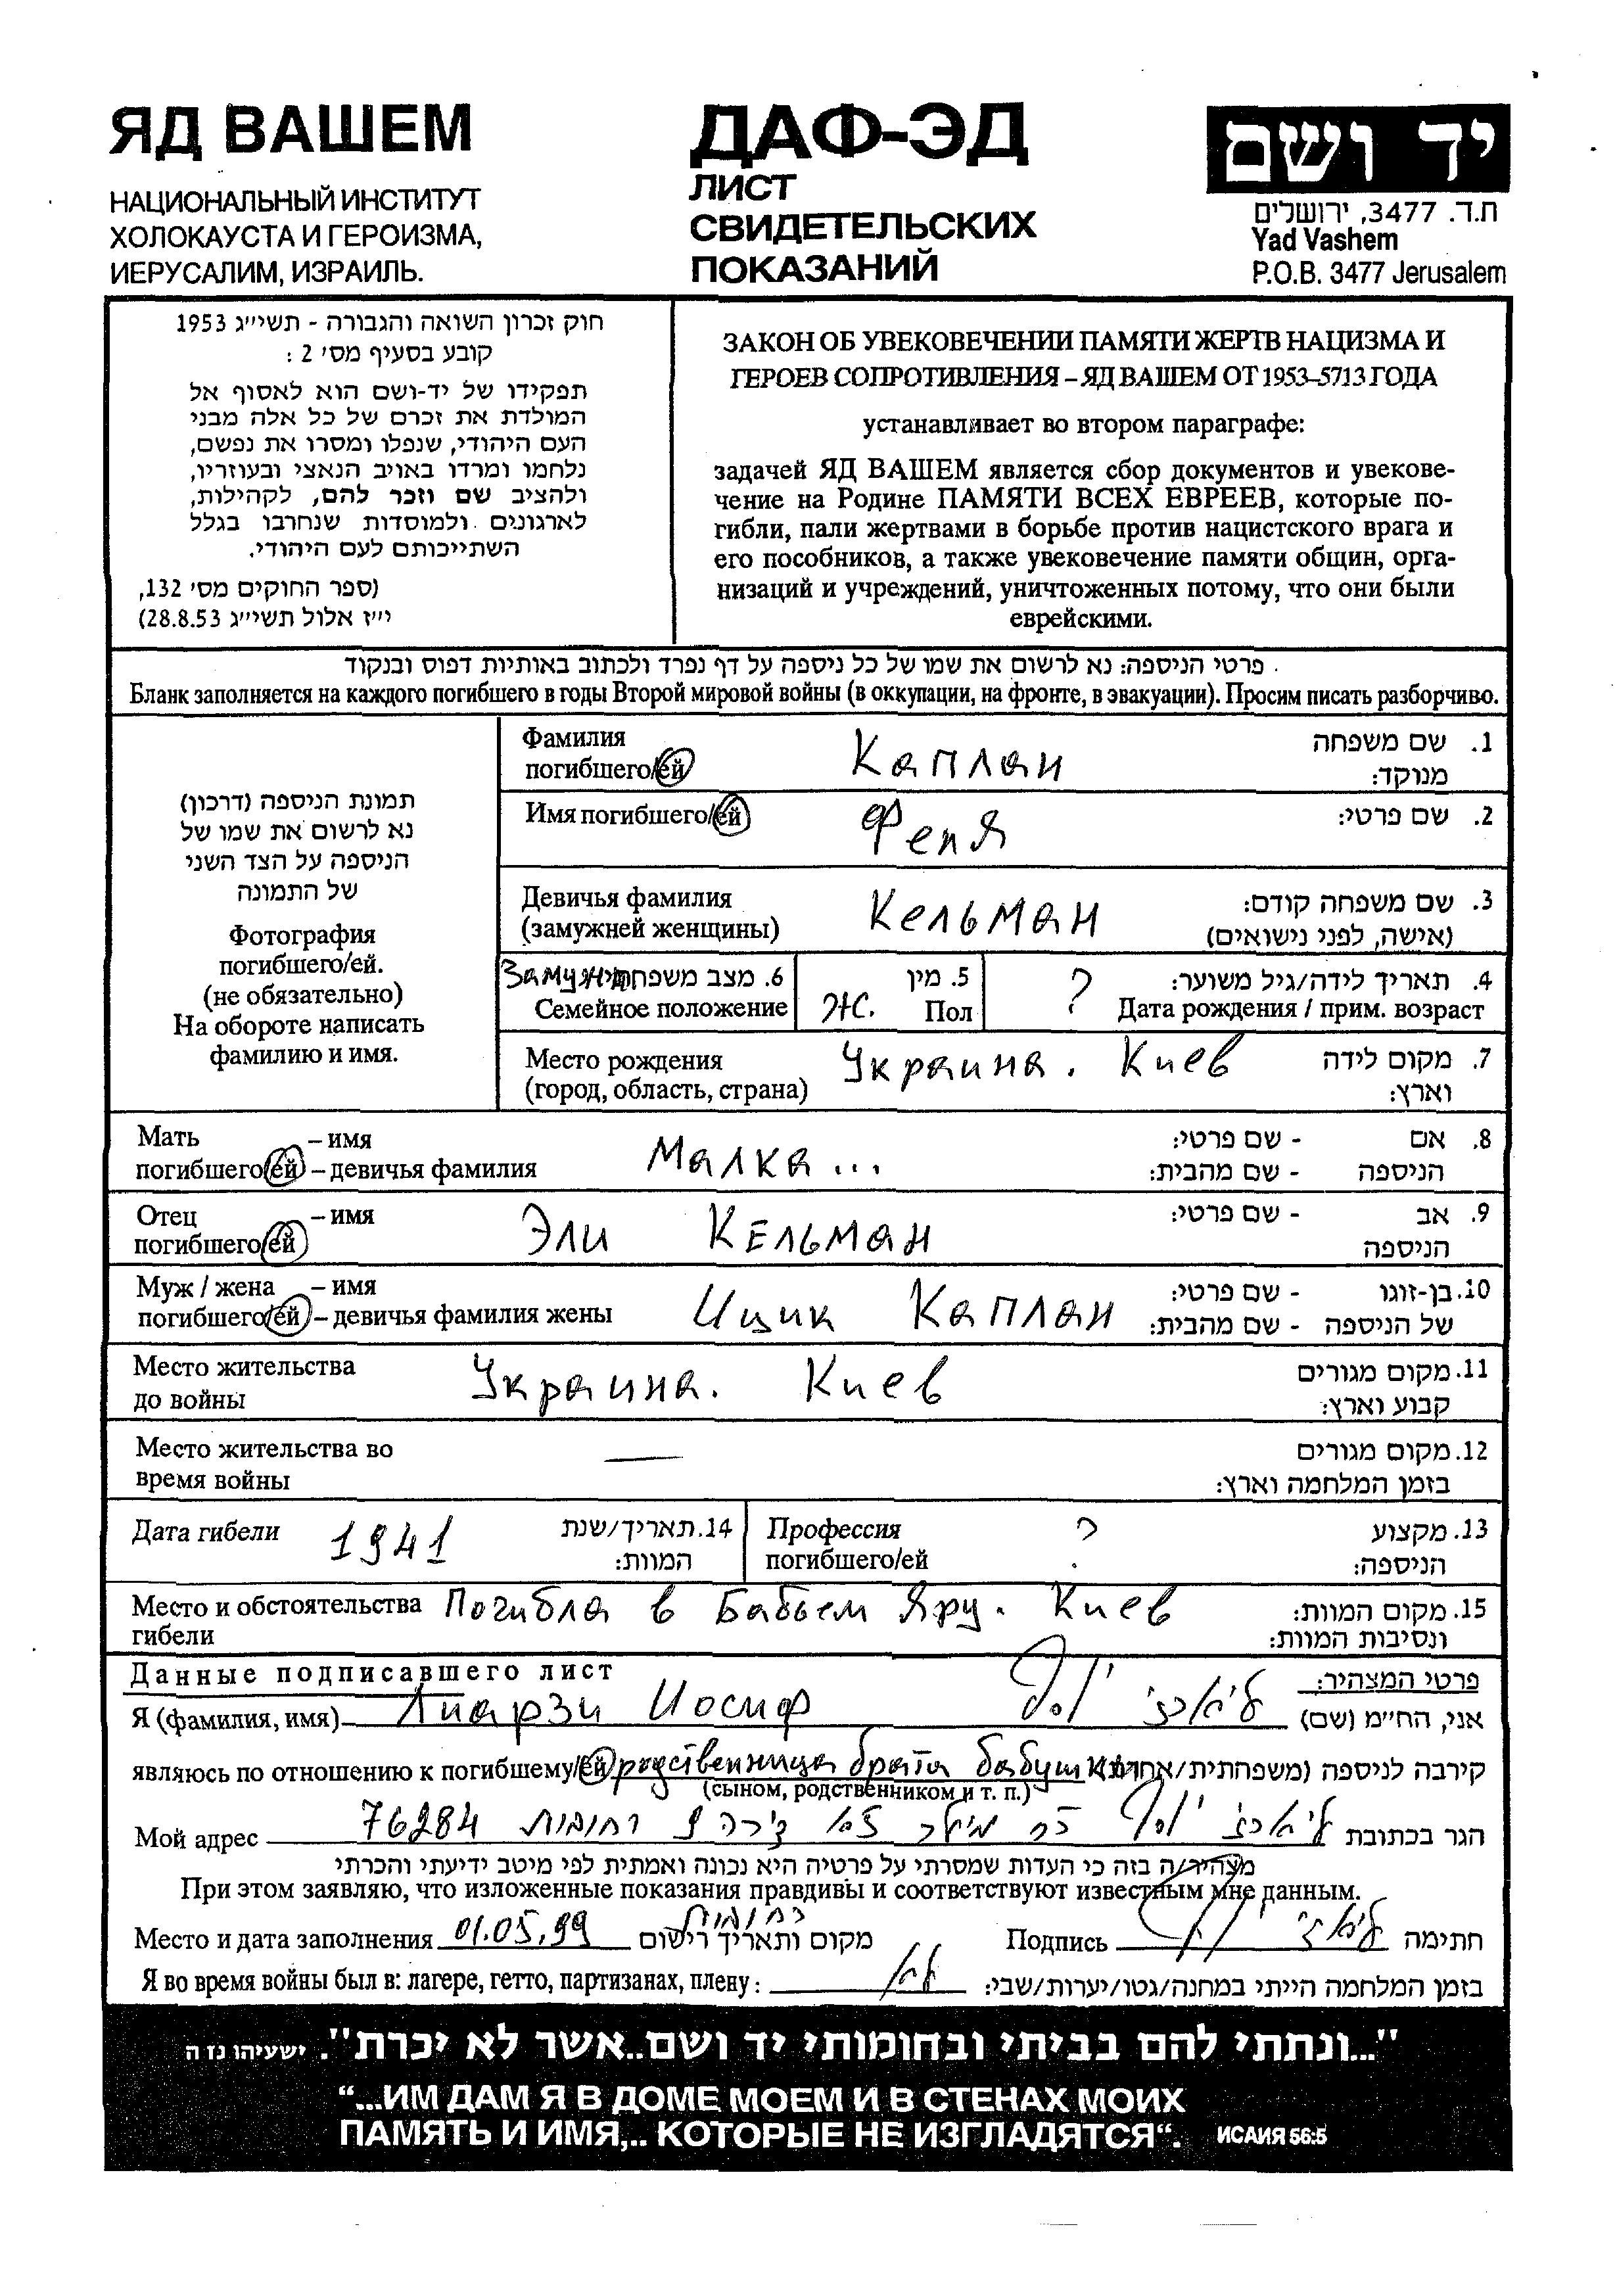 ЯД ВАШЕМ
НАЦИОНАЛЬНЫЙ ИНСТИТУТ
ХОЛОКАУСТА И ГЕРОИЗМА,
ИЕРУСАЛИМ, ИЗРАИЛЬ.
ДАФ-ЭД
ЛИСТ
СВИДЕТЕЛЬСКИХ
ПОКАЗАНИЙ
יד ושם
ת.ד. 3477, ירושלים
Yad Vashem
P.O.B. 3477 Jerusalem
חוק זכרון השואה והגבורה - תשי״ג 1953
קובע בסעיף מס׳ 2 :
תפקידו של יד-ושם הוא לאסוף אל
המולדת את זכרם של כל אלה מבני
העם היהודי, שנפלו ומסרו את נפשם,
נלחמו ומרדו באויב הנאצי ובעוזריו,
ולהציב שם וזכר להם, לקהילות,
לארגונים ולמוסדות שנחרבו בגלל
השתייכותם לעם היהודי.
(ספר החוקים מס׳ 132,
י״ז אלול תשי״ג 28.8.53)
ЗАКОН ОБ УВЕКОВЕЧЕНИИ ПАМЯТИ ЖЕРТВ НАЦИЗМА И
ГЕРОЕВ СОПРОТИВЛЕНИЯ – ЯД ВАШЕМ ОТ 1953–5713 ГОДА
устанавливает во втором параграфе:
задачей ЯД ВАШЕМ является сбор документов и увекове-
чение на Родине ПАМЯТИ ВСЕХ ЕВРЕЕВ, которые по-
гибли, пали жертвами в борьбе против нацистского врага и
его пособников, а также увековечение памяти общин, орга-
низаций и учреждений, уничтоженных потому, что они были
еврейскими.
פרטי הניספה: נא לרשום את שמו של כל ניספה על דף נפרד ולכתוב באותיות דפוס ובנקוד
Бланк заполняется на каждого погибшего в годы Второй мировой войны (в оккупации, на фронте, в эвакуации). Просим писать разборчиво.
תמונת הניספה (דרכון)
נא לרשום את שמו של
הניספה על הצד השני
של התמונה
Фотография
погибшего/ей.
(не обязательно)
На обороте написать
фамилию и имя.
Фамилия Каплан 1. שם משפחה
погибшего/ей מנוקד:
Имя погибшего/ей Феня 2. שם פרטי:
Девичья фамилия Кельман 3. שם משפחה קודם:
(замужней женщины) (אישה, לפני נישואים)
Замужн 6. מצב משפחתי 5. מין ? 4. תאריך לידה/גיל משוער:
Семейное положение Ж. Пол Дата рождения / прим. возраст
Место рождения Украина. Киев 7. מקום לידה
(город, область, страна) וארץ:
Мать – имя Малка... 8. אם - שם פרטי:
погибшего/ей – девичья фамилия הניספה - שם מהבית:
Отец – имя Эли Кельман 9. אב - שם פרטי:
погибшего/ей הניספה
Муж / жена – имя Ицик Каплан 10. בן-זוגו - שם פרטי:
погибшего/ей – девичья фамилия жены של הניספה - שם מהבית:
Место жительства Украина. Киев 11. מקום מגורים
до войны קבוע וארץ:
Место жительства во — 12. מקום מגורים
время войны בזמן המלחמה וארץ:
Дата гибели 1941 14. תאריך/שנת Профессия ? 13. מקצוע
המוות: погибшего/ей הניספה:
Место и обстоятельства Погибла в Бабьем Яру. Киев 15. מקום המוות:
гибели ונסיבות המוות:
Данные подписавшего лист פרטי המצהיר:
Я (фамилия, имя) Лиарзи Иосиф ליארזי יוסף אני, הח״מ (שם)
являюсь по отношению к погибшему/ей родственница брата бабушки קירבה לניספה (משפחתית/אחרת)
(сыном, родственником и т. п.)
Мой адрес ליארזי יוסף דירה 9 רחובות 76284 הגר בכתובת
מצהיר/ה בזה כי העדות שמסרתי על פרטיה היא נכונה ואמתית לפי מיטב ידיעתי והכרתי
При этом заявляю, что изложенные показания правдивы и соответствуют известным мне данным.
Место и дата заполнения 01.05.99 רחובות מקום ותאריך רישום Подпись ליארזי חתימה
Я во время войны был в: лагере, гетто, партизанах, плену: לא בזמן המלחמה הייתי במחנה/גטו/יערות/שבי:
"...ונתתי להם בביתי ובחומותי יד ושם..אשר לא יכרת". ישעיהו נז ה
“...ИМ ДАМ Я В ДОМЕ МОЕМ И В СТЕНАХ МОИХ
ПАМЯТЬ И ИМЯ,.. КОТОРЫЕ НЕ ИЗГЛАДЯТСЯ“. ИСАИЯ 56:5